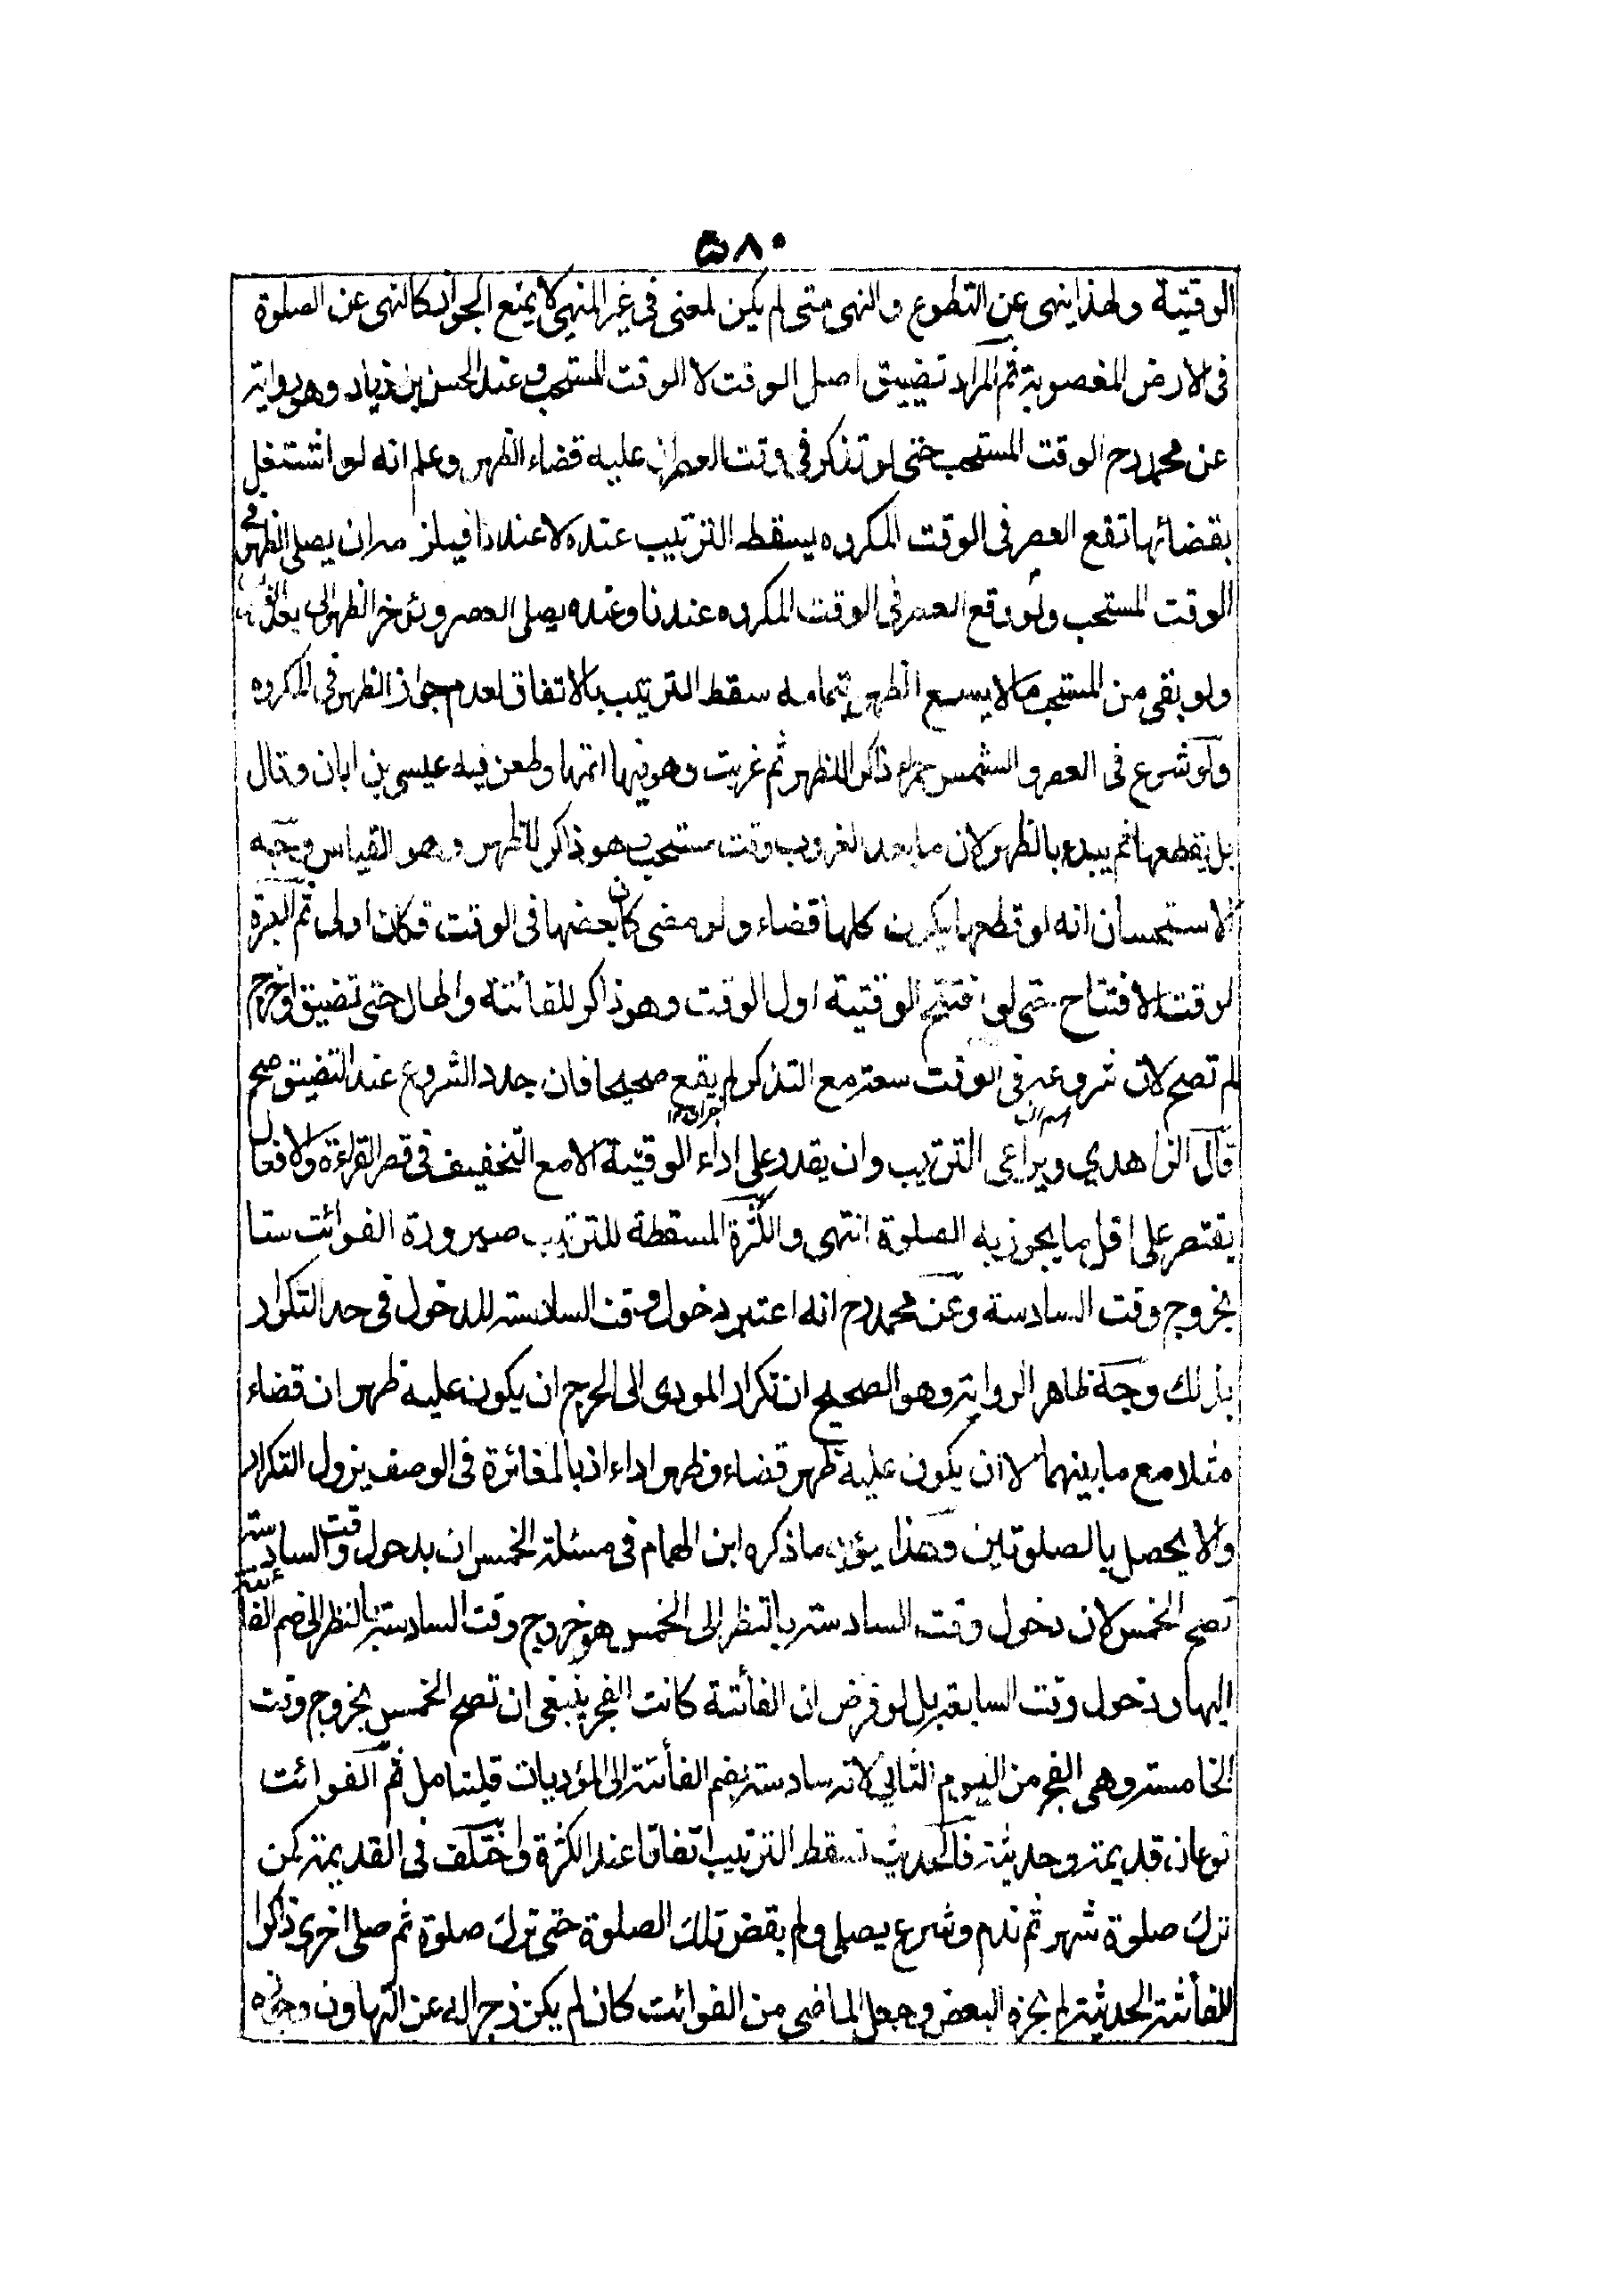 ٥٨٠
الوقتية ولهذا ينهى عن التطوع والنهى متى لم يكن لمعنى فى غير المنهى لا يمنع الجواز كالنهى عن الصلوة
فى الارض المغصوبة ثم المراد تضييق اصل الوقت لا الوقت المستحب وعند الحسن بن زياد وهو رواية
عن محمد رح الوقت المستحب حتى لو تذكر فى وقت العصر ان عليه قضاء الظهر وعلم انه لو اشتغل
بقضائها تقع العصر فى الوقت المكروه يسقط الترتيب عنده لا عندنا فيلزمه ان يصلى الظهر فى
الوقت المستحب ولو وقع العصر فى الوقت المكروه عندنا وعنده يصلى العصر ويؤخر الظهر الى بعد
ولو بقى من المستحب ما لا يسع الظهر بتمامه سقط الترتيب بالاتفاق لعدم جواز الظهر فى المكروه
ولو شرع فى العصر والشمس حمراء ذاكر اللظهر ثم غربت وهو فيها اتمها وطعن فيه عيسى بن ابان وقال
بل يقطعها ثم يبدء بالظهر لان ما بعد الغروب وقت مستحب وهو ذاكر للظهر وهو القياس وجه
الاستحسان انه لو قطعها يكون كلها قضاء ولو مضى كان بعضها فى الوقت فكان اولى ثم العبرة
لوقت الافتتاح حتى لو افتتح الوقتية اول الوقت وهو ذاكر للفائتة واطال حتى تضيق او خرج
لم تصح لان شروعه فى الوقت سعة مع التذكر لم يقع صحيحا فان جدد الشروع عند التضيق صح
قال الزاهدي ويراعى الترتيب وان يقدر على اداء الوقتية الا مع التخفيف فى قصر القراءة والافعال
يقتصر على اقل ما يجوز به الصلوة انتهى والكثرة المسقطة للترتيب صيرورة الفوائت ستا
بخروج وقت السادسة وعن محمد رح انه اعتبر دخول وقت السادسة للدخول فى حد التكرار
بذلك وجه ظاهر الرواية وهو الصحيح ان تكرار المودى الى الحرج ان يكون عليه ظهر ان قضاء
مثلا مع ما بينهما لا ان يكون عليه ظهر قضاء وظهر اداء اذ بالمغائرة فى الوصف يزول التكرار
والا يحصل بالصلوتين وهذا يؤيد ما ذكره ابن الهمام فى مسئلة الخمس ان بدخول وقت السادسة
تصح الخمس لان دخول وقت السادسة بالنظر الى الخمس هو خروج وقت السادسة بالنظر الى ضم الفائتة
اليها ودخول وقت السابعة بل لو فرض ان الفائتة كانت الفجر ينبغى ان تصح الخمس بخروج وقت
الخامسة وهى الفجر من اليوم الثاني لانه سادسة بضم الفائتة الى المؤديات فليتامل ثم الفوائت
نوعان قديمة وحديثة فالحديث تسقط الترتيب اتفاقا عند الكثرة واختلف فى القديمة كمن
ترك صلوة شهر ثم ندم وشرع يصلى ولم يقض تلك الصلوة حتى ترك صلوة ثم صلى اخرى ذاكرا
للفائتة الحديثة لم يجزه البعض وجعل الماضى من الفوائت كان لم يكن زجرا له عن التهاون وجوزه